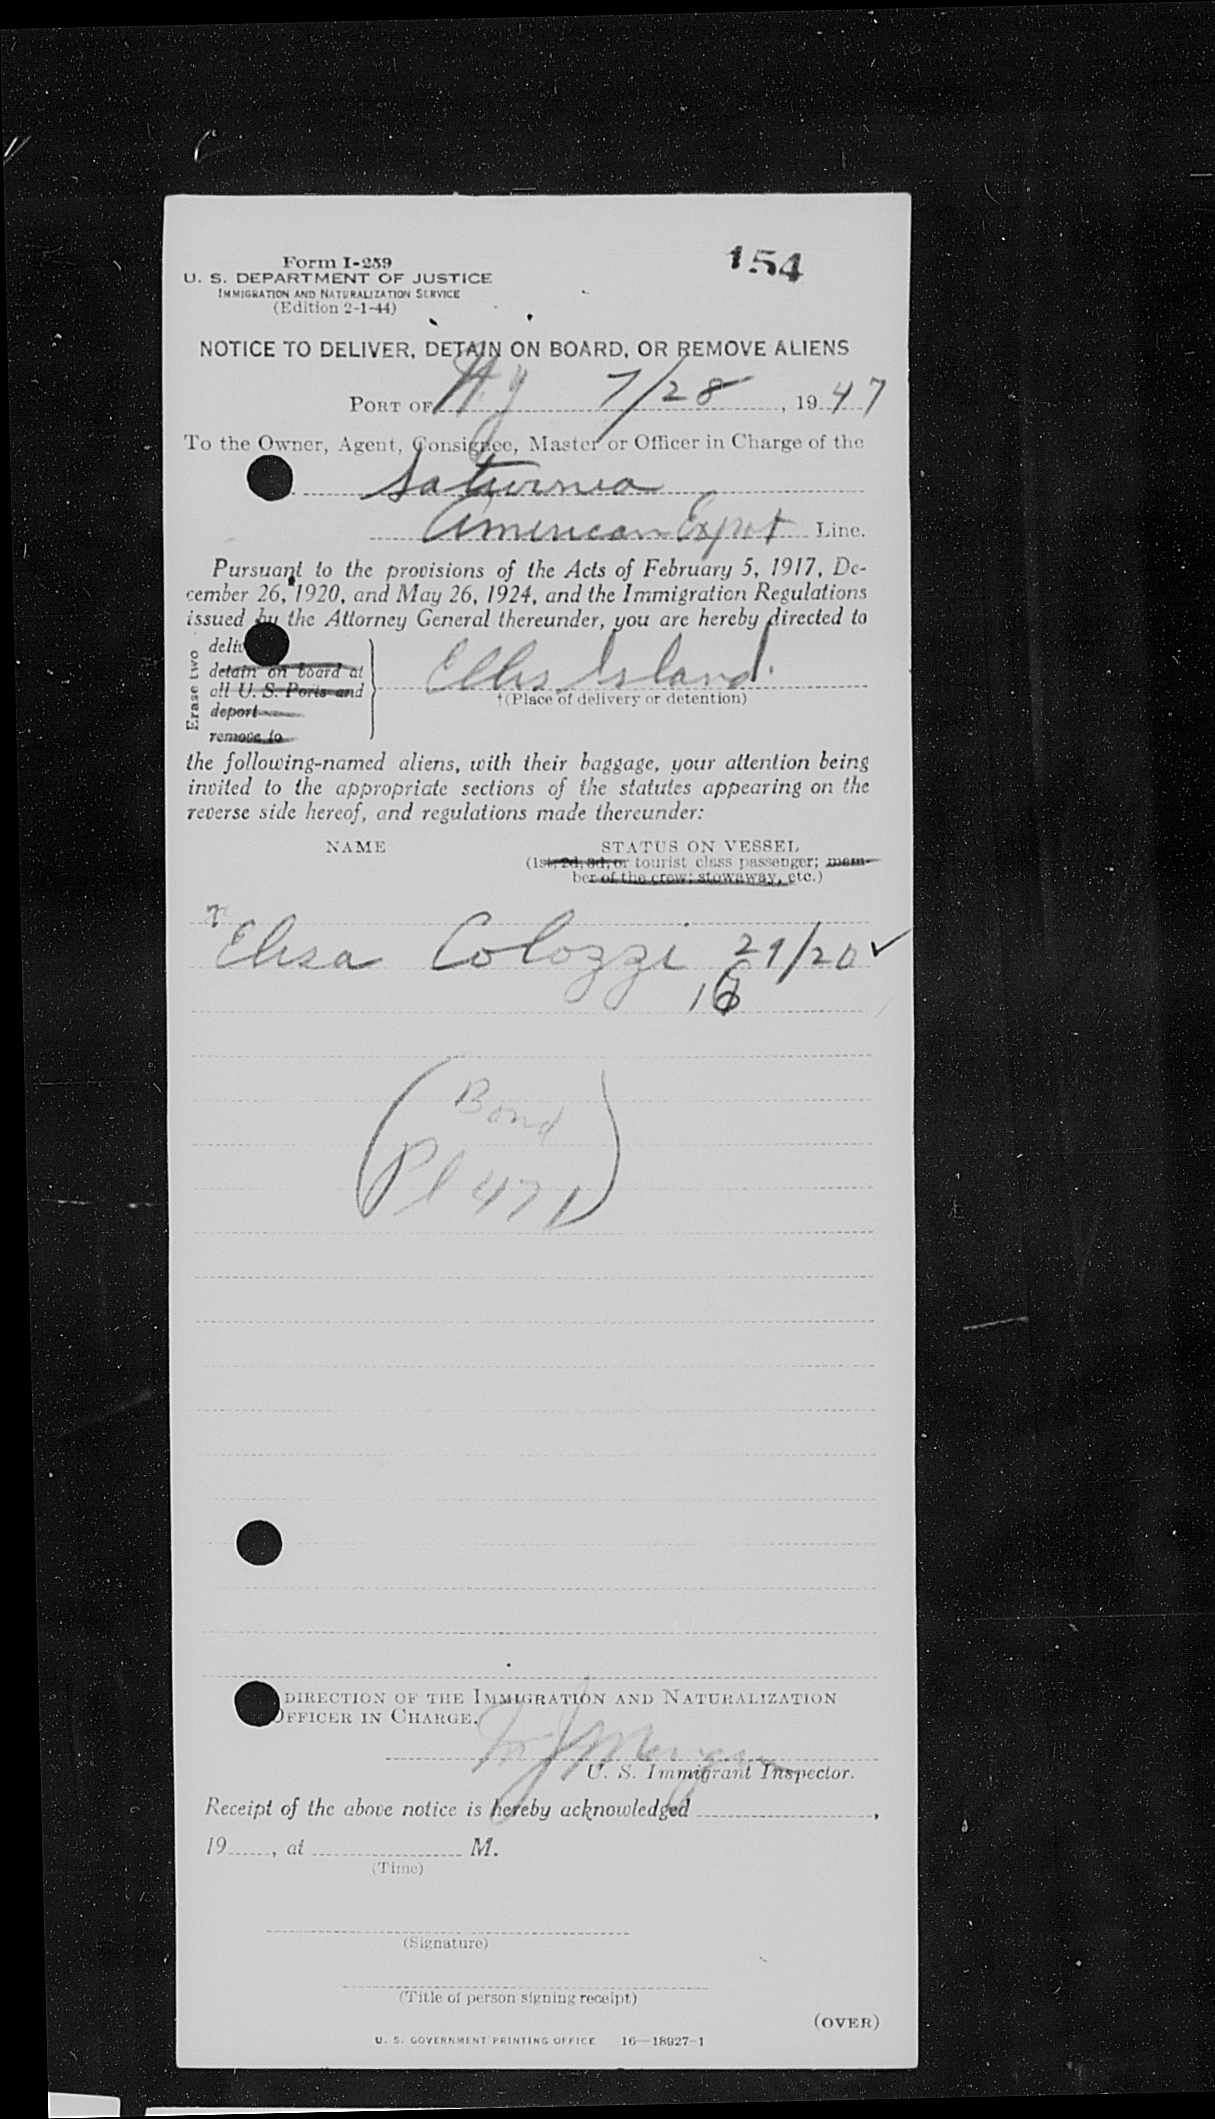 Form I-259
154
U. S. DEPARTMENT OF JUSTICE
IMMIGRATION AND NATURALIZATION SERVICE
(Edition 2-1-44)
NOTICE TO DELIVER, DETAIN ON BOARD, OR REMOVE ALIENS
PORT OF N.Y 7/28, 1947
To the Owner, Agent, Consignee, Master or Officer in Charge of the
Saturnia
American Export Line.
Pursuant to the provisions of the Acts of February 5, 1917, De-
cember 26, 1920, and May 26, 1924, and the Immigration Regulations
issued by the Attorney General thereunder, you are hereby directed to
Erase two
deliv
detain on board at
all U. S. Ports and
deport
remove to
Ellis Island
†(Place of delivery or detention)
the following-named aliens, with their baggage, your attention being
invited to the appropriate sections of the statutes appearing on the
reverse side hereof, and regulations made thereunder:
NAME STATUS ON VESSEL
(1st, 2d, 3d, or tourist class passenger; mem-
ber of the crew; stowaway, etc.)
Elisa Colozzi 29/20 ✓
16
(Bond
Pl 471)
DIRECTION OF THE IMMIGRATION AND NATURALIZATION
OFFICER IN CHARGE.
U. S. Immigrant Inspector.
Receipt of the above notice is hereby acknowledged ,
19 , at M.
(Time)
(Signature)
(Title of person signing receipt)
(OVER)
U. S. GOVERNMENT PRINTING OFFICE 16—18927-1